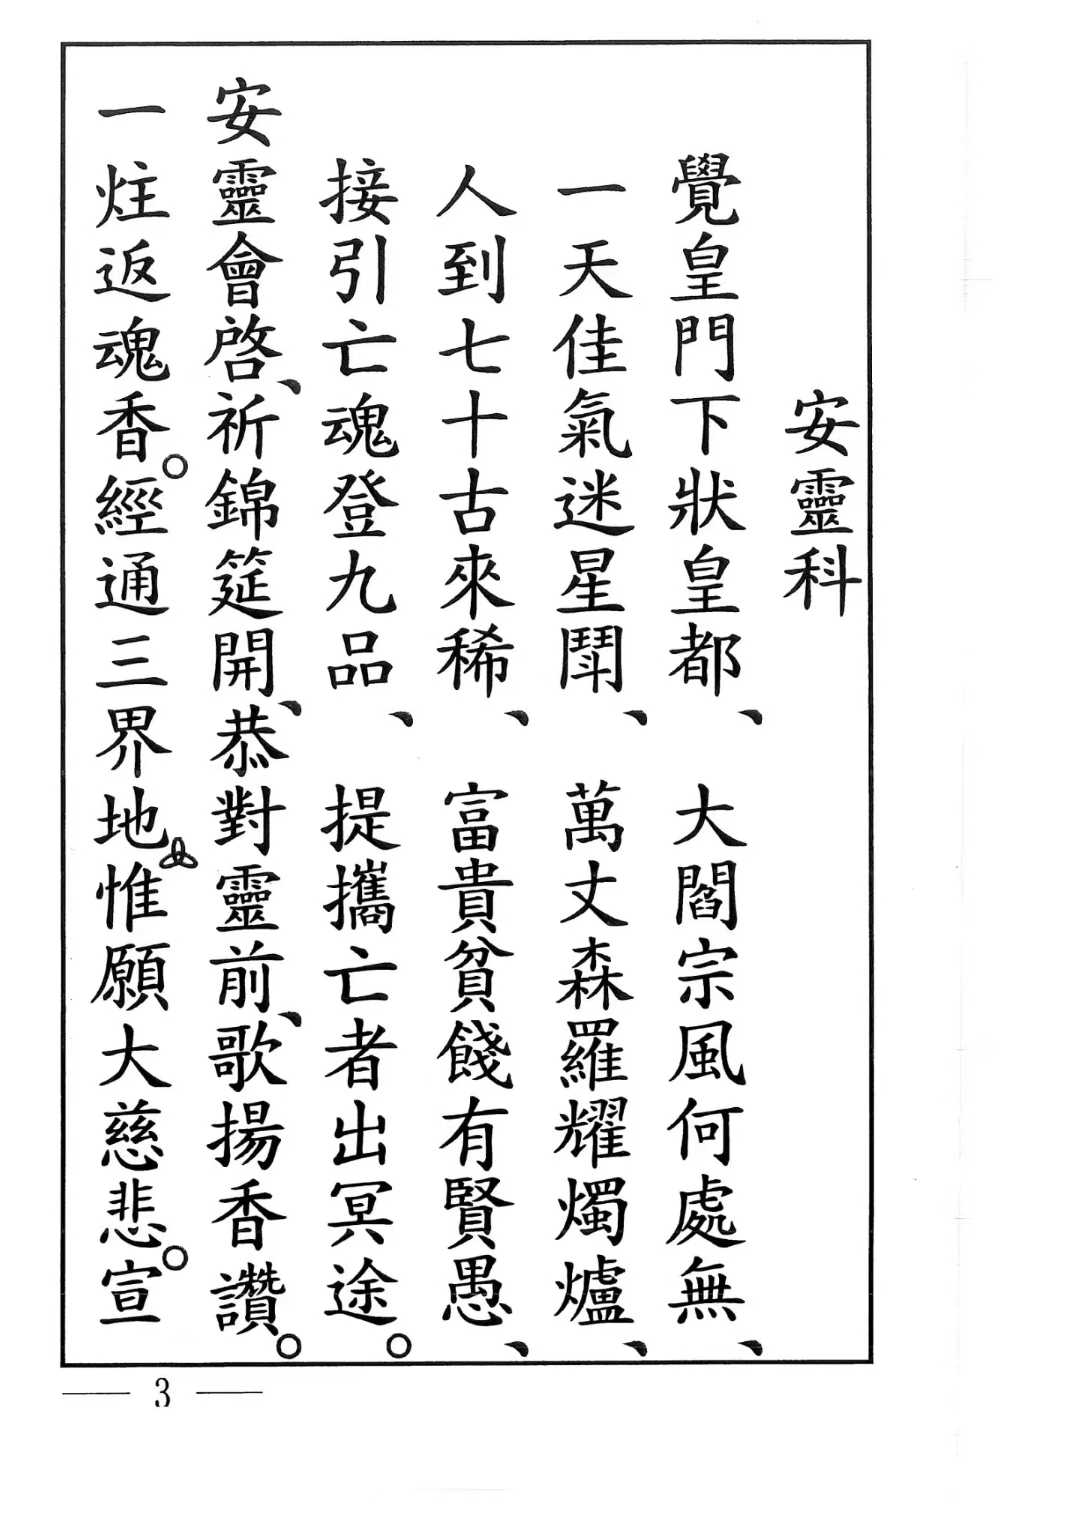 安靈科
覺皇門下狀皇都、　大閻宗風何處無、
一天佳氣迷星鬪、　萬丈森羅耀燭爐、
人到七十古來稀、　富貴貧餞有賢愚、
接引亡魂登九品、　提攜亡者出冥途。
安靈會啓、祈錦筵開、恭對靈前、歌揚香讚。
一炷返魂香。經通三界地惟願大慈悲。宣
3